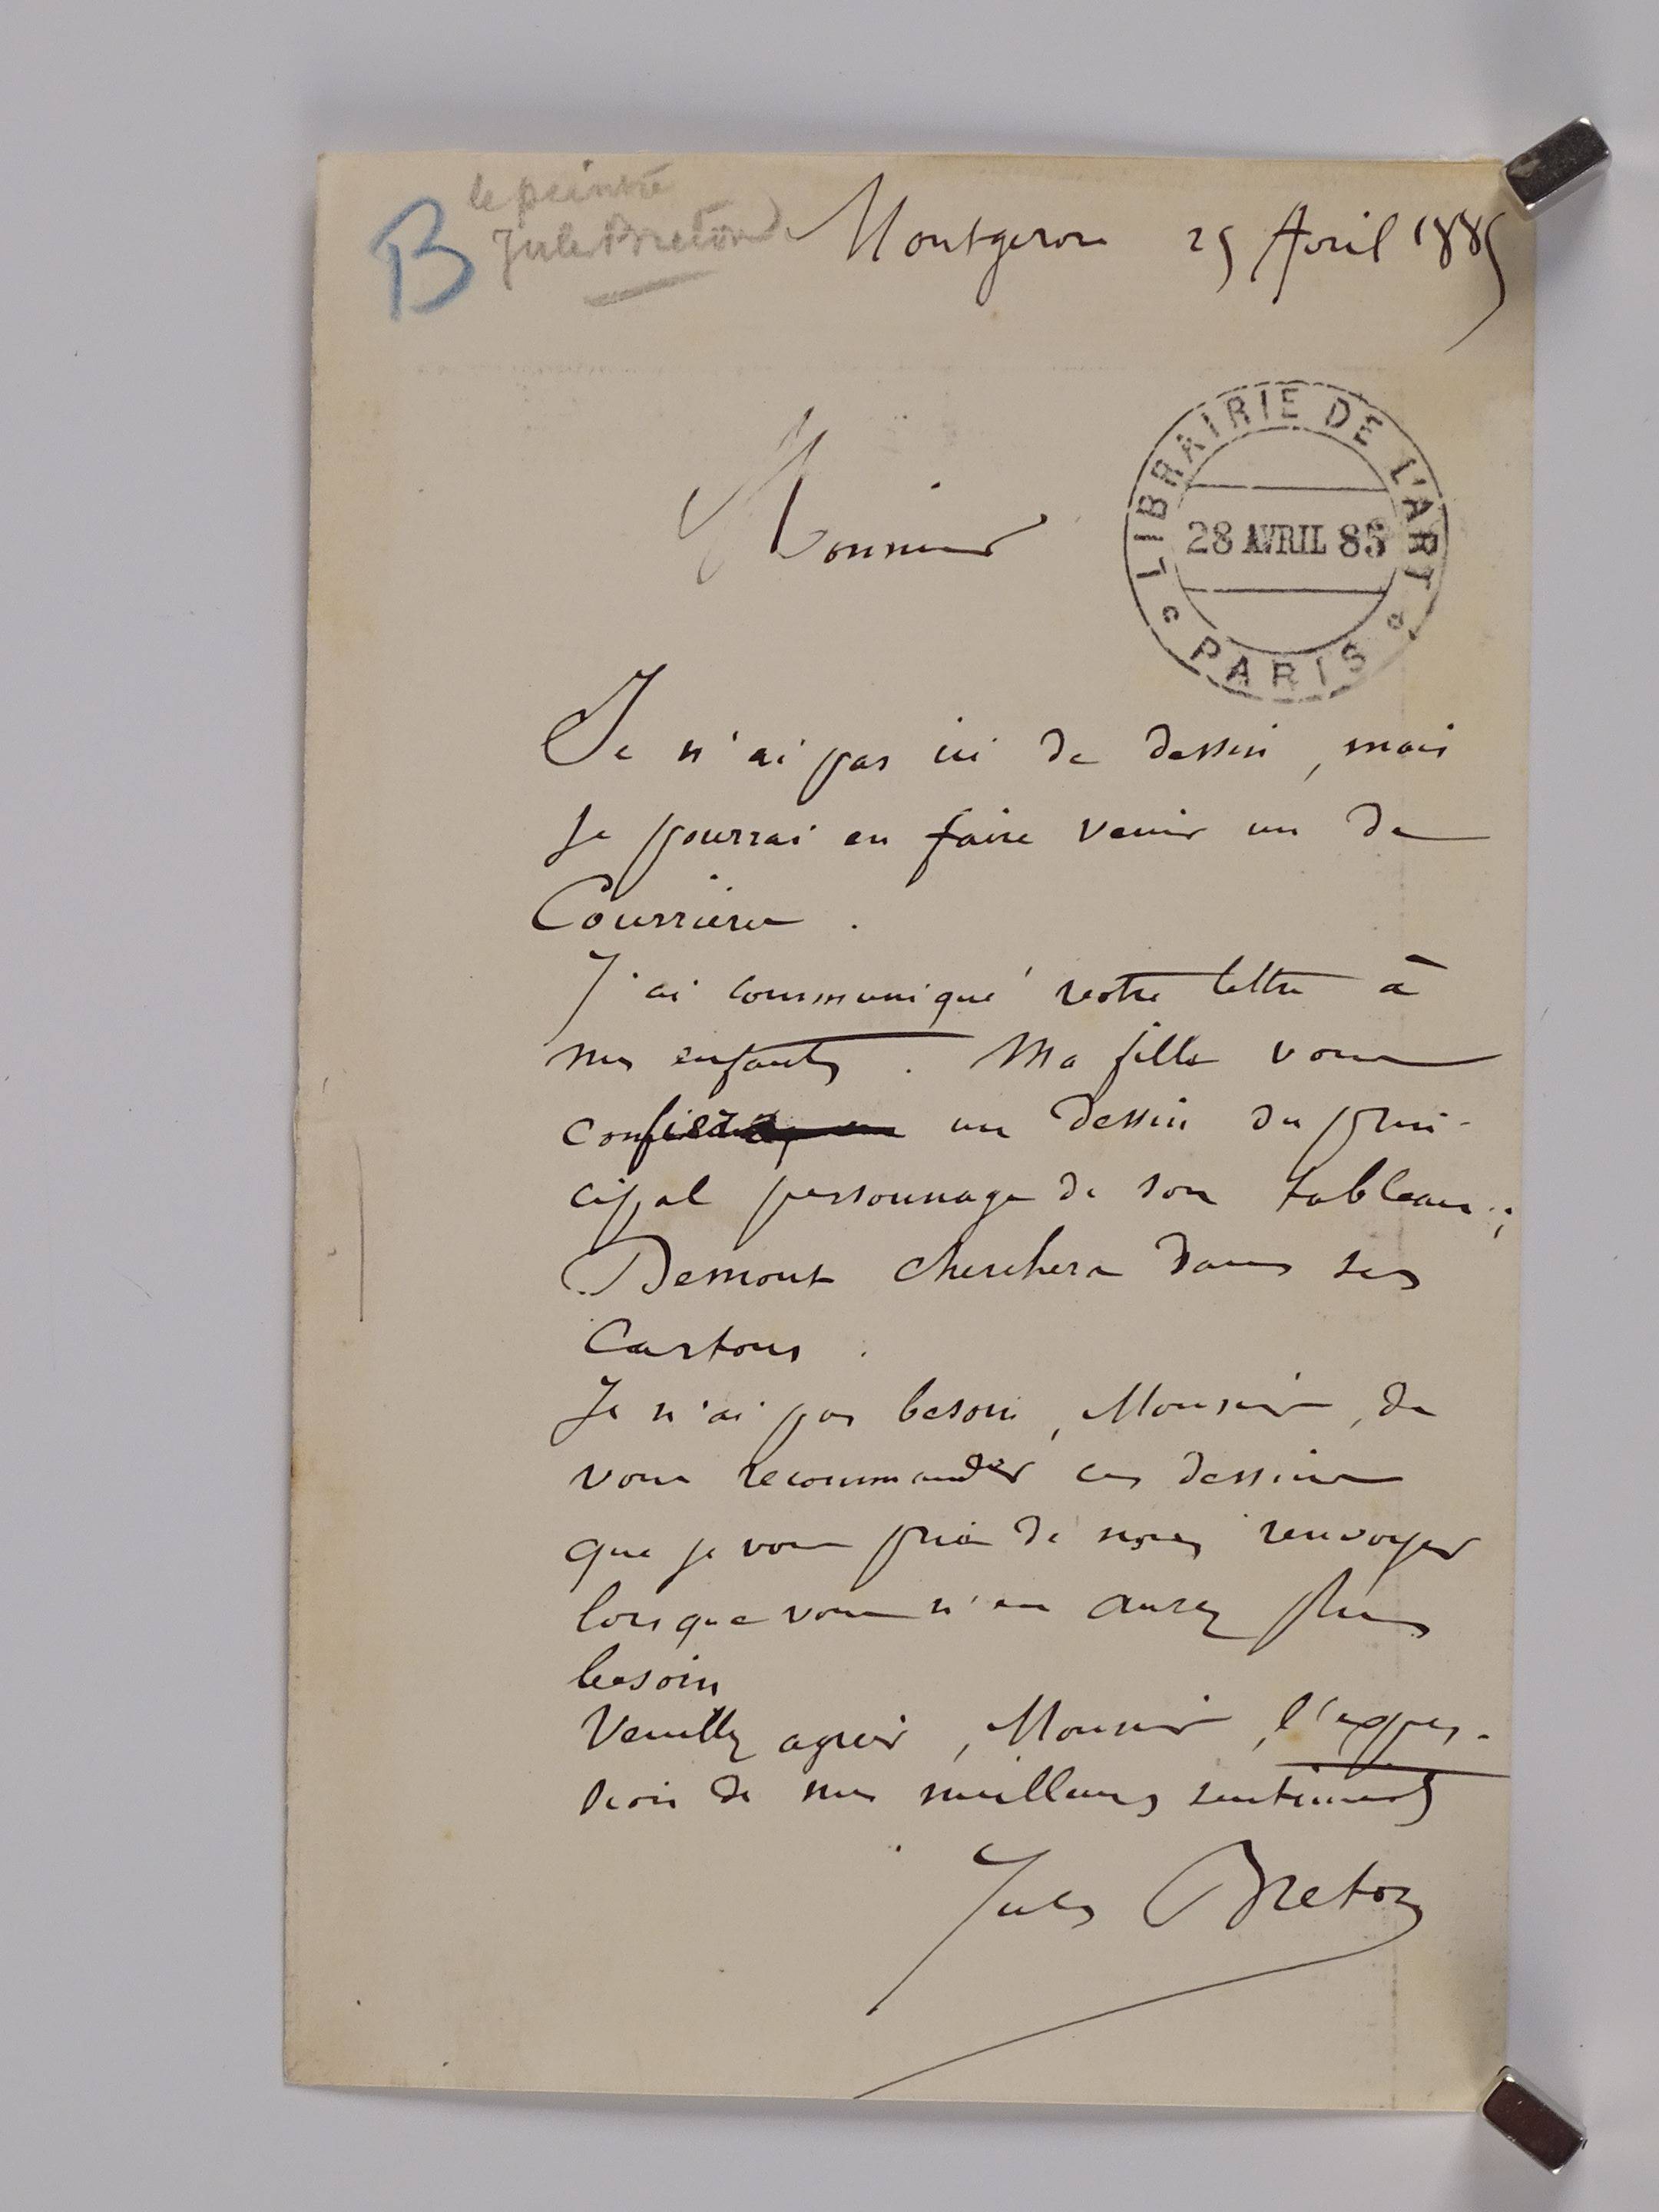 B
le peintre
Jules Breton
Montgeron 25 Avril 1885
LIBRAIRIE DE L'ART
28 AVRIL 85
PARIS
Monsieur
Je n'ai pas ici de dessin, mais
je pourrai en faire venir un de
Courrières.
J'ai communiqué votre lettre à
mes enfants. Ma fille vous
confiera un dessin du prin-
cipal personnage de son tableau;
Demont cherchera dans ses
Cartons.
Je n'ai pas besoin, Monsieur, de
vous recommander ces dessins
que je vous prie de nous renvoyer
lorsque vous n'en aurez plus
besoin
Veuillez agréer, Monsieur, l'expres-
sion de mes meilleurs sentiments
Jules Breton